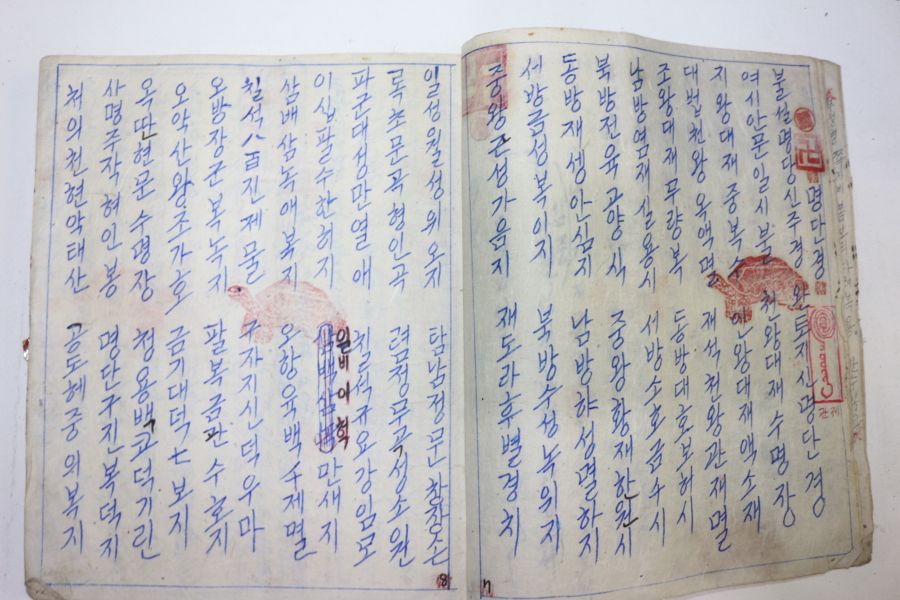 명단경
불설명당신주경 안토지신명단경
여시안문일시불 천왕대재수명장
지왕대재중복수 인왕대재액소재
대법천왕옥액멸 재석천왕관재멸
조왕대재무량복 동방대호보허시
남방염재실용시 서방소호금수시
북방전육공양식 중왕황재하원시
동방재셍아심지 남방햐성멸하지
서방금성복이지 북방수성녹위지
중왕군성가음지 재도라후별경치
7
일성월성위오지 탐남정문창장손
록초문곡형인곡 렴정무곡성소원
파군대성만열애 칠석규요강임모
일비이혁
이십팔수한허지 만새지
삼배삼녹애복지 오항육백수제멸
칠석八百진제물 구자지신덕우마
오방장군복녹지 팔복금관수호지
오악산왕조가호 금기대덕七보지
옥딴현문수명장 청용백고덕기린
사명주작혀인봉 명단구진복덕지
처의천현악태산 공도혜중의복지
8